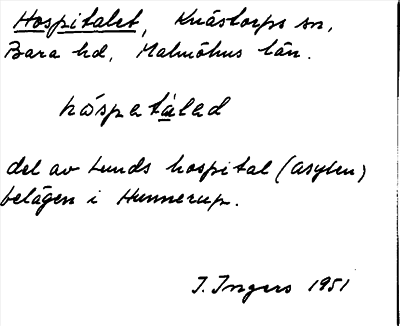 Hospitalet, Knästorps sn,
Bara hd, Malmöhus län.
håspatàled
del av Lunds hospital (asylen)
belägen i Hunnerup.
I. Ingers 1951